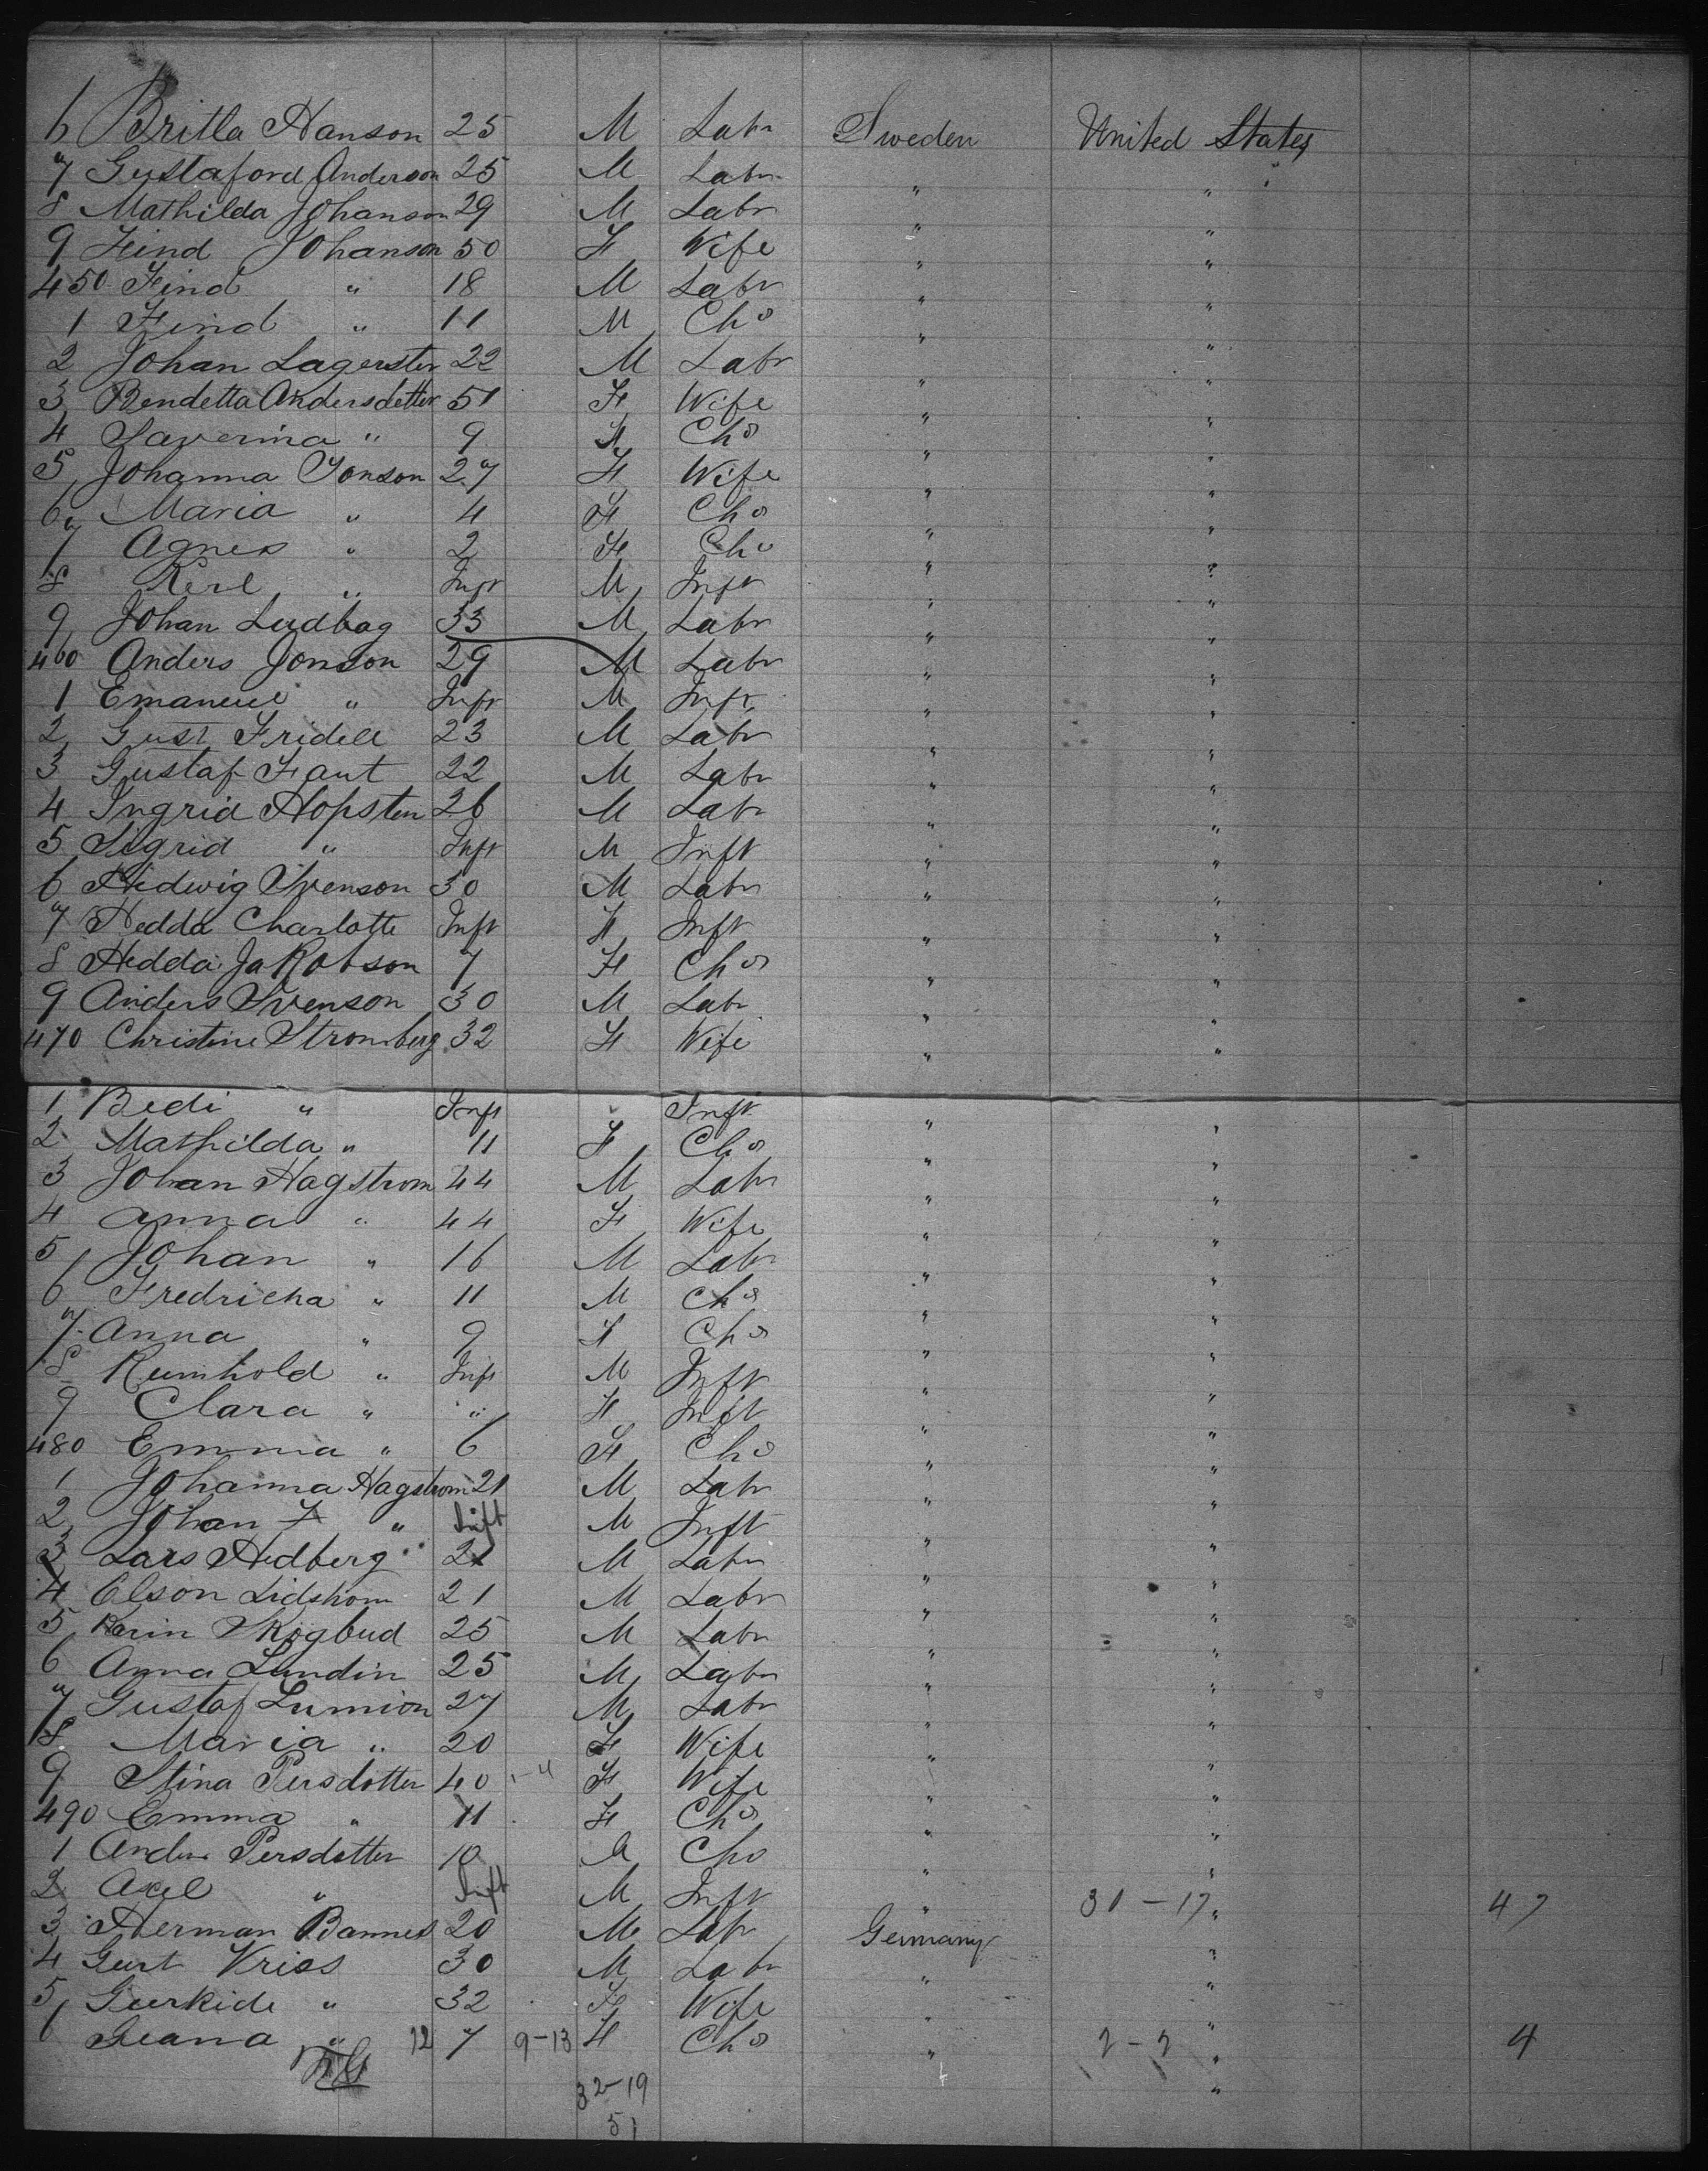 6 Britla Hanson 25 M Labr Sweden United States
7 Gustaford Anderson 25 M Labr " "
8 Mathilda Johanson 29 M Labr " "
9 Find Johanson 50 F Wife " "
450 Find " 18 M Labr " "
1 Find " 11 M Chd " "
2 Johan Lagerster 22 M Labr " "
3 Bendetta Andersdetter 51 F Wife " "
4 Saverina " 9 F Chd " "
5 Johanna Jonson 27 F Wife " "
6 Maria " 4 F Chd " "
7 Agnes " 2 F Chd " "
8 Kerl " Inft M Inft " "
9 Johan Ludbag 33 M Labr " "
460 Anders Jonson 29 M Labr " "
1 Emanuel " Inft M Inft " "
2 Gust Fridell 23 M Labr " "
3 Gustaf Faut 22 M Labr " "
4 Ingrid Hopsten 26 M Labr " "
5 Sigrid " Inft M Inft " "
6 Hedwig Svenson 30 M Labr " "
7 Hedda Charlotte Inft F Inft " "
8 Hedda Jakobson 7 F Chd " "
9 Anders Svenson 30 M Labr " "
470 Christine Stromberg 32 F Wife " "
1 Bedi " Inft Inft " "
2 Mathilda " 11 F Chd " "
3 Johan Hagstrom 44 M Labr " "
4 Anna " 44 F Wife " "
5 Johan " 16 M Labr " "
6 Fredricka " 11 M Chd " "
7 Anna " 9 F Chd " "
8 Rumhold " Inft M Inft " "
9 Clara " " F Inft " "
480 Emma " 6 F Chd " "
1 Johanna Hagstrom 21 M Labr " "
2 Johan F " Inft M Inft " "
3 Lars Hedberg 21 M Labr " "
4 Olson Lidstrom 21 M Labr " "
5 Karin Skogbud 25 M Labr " "
6 Anna Lundin 25 M Labr " "
7 Gustaf Lumion 27 M Labr " "
8 Maria " 20 F Wife " "
9 Stina Persdotter 40 F Wife " "
490 Emma " 11 F Chd " "
1 Anders Persdotter 10 M Chd " "
2 Axel " Inft M Inft " 30 - 17 " 47
3 Herman Bannes 20 M Labr Germany "
4 Gert Vriss 30 M Labr " "
5 Geerkide " 32 F Wife " "
6 Geana " 12 7 9-13 F Chd " 2-2 " 4
32-19
51